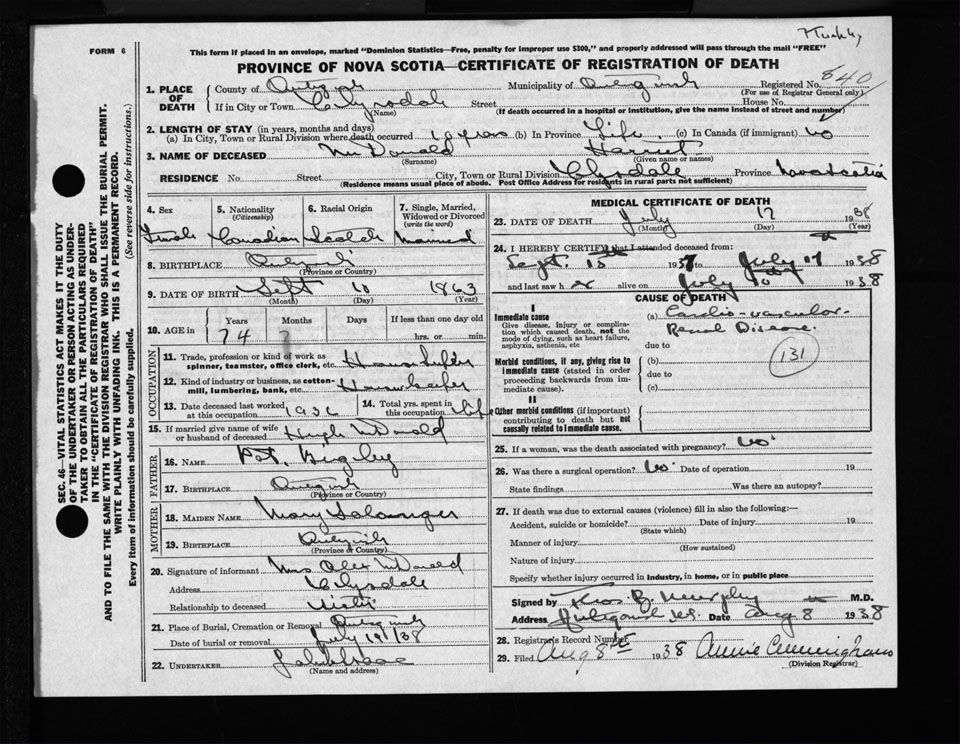 FORM 6
This form if placed in an envelope, marked "Dominion Statistics—Free, penalty for improper use $300," and properly addressed will pass through the mail "FREE"
PROVINCE OF NOVA SCOTIA—CERTIFICATE OF REGISTRATION OF DEATH
840
1. PLACE OF DEATH
County of Antigonish Municipality of Antigonish Registered No.
(For use of Registrar General only)
If in City or Town Street House No.
(Name) (If death occurred in a hospital or institution, give the name instead of street and number)
2. LENGTH OF STAY (in years, months and days)
(a) In City, Town or Rural Division where death occurred 10 years (b) In Province Life. (c) In Canada (if immigrant) No
3. NAME OF DECEASED McDonald Harriet
(Surname) (Given name or names)
RESIDENCE No. Street City, Town or Rural Division Clydesdale Province Nova Scotia
(Residence means usual place of abode. Post Office Address for residents in rural parts not sufficient)
SEC. 46—VITAL STATISTICS ACT MAKES IT THE DUTY
OF THE UNDERTAKER OR PERSON ACTING AS UNDER-
TAKER TO OBTAIN ALL THE PARTICULARS REQUIRED
IN THE "CERTIFICATE OF REGISTRATION OF DEATH"
AND TO FILE THE SAME WITH THE DIVISION REGISTRAR WHO SHALL ISSUE THE BURIAL PERMIT.
WRITE PLAINLY WITH UNFADING INK. THIS IS A PERMANENT RECORD.
Every item of information should be carefully supplied. (See reverse side for instructions.)
4. Sex 5. Nationality (Citizenship) 6. Racial Origin 7. Single, Married, Widowed or Divorced (write the word)
Female Canadian Scotch Married
8. BIRTHPLACE Antigonish
(Province or Country)
9. DATE OF BIRTH Sept 10 1863
(Month) (Day) (Year)
10. AGE in Years Months Days If less than one day old
74 hrs. or min.
OCCUPATION
11. Trade, profession or kind of work as spinner, teamster, office clerk, etc.
12. Kind of industry or business, as cotton-mill, lumbering, bank, etc.
13. Date deceased last worked at this occupation 1936
14. Total yrs. spent in this occupation life
15. If married give name of wife or husband of deceased Hugh McDonald
FATHER
16. NAME Pat.
17. BIRTHPLACE Antigonish
(Province or Country)
MOTHER
18. MAIDEN NAME Mary
19. BIRTHPLACE Antigonish
(Province or Country)
20. Signature of informant Mrs Alex McDonald
Address Clydesdale
Relationship to deceased Sister
21. Place of Burial, Cremation or Removal Antigonish
Date of burial or removal July 19/38
22. UNDERTAKER
(Name and address)
MEDICAL CERTIFICATE OF DEATH
23. DATE OF DEATH July 17 1938
(Month) (Day) (Year)
24. I HEREBY CERTIFY that I attended deceased from:
Sept. 15th 1937 to July 17th 1938
and last saw h er alive on July 10th 1938
CAUSE OF DEATH
I
Immediate cause
Give disease, injury or complication which caused death, not the mode of dying, such as heart failure, asphyxia, asthenia, etc
(a) Cardio-vascular-
Renal Disease.
due to
131
Morbid conditions, if any, giving rise to immediate cause (stated in order proceeding backwards from immediate cause).
(b)
due to
(c)
II
Other morbid conditions (if important) contributing to death but not causally related to immediate cause.
25. If a woman, was the death associated with pregnancy? No
26. Was there a surgical operation? No Date of operation 19
State findings Was there an autopsy?
27. If death was due to external causes (violence) fill in also the following:—
Accident, suicide or homicide? Date of injury 19
(State which)
Manner of injury
(How sustained)
Nature of injury
Specify whether injury occurred in industry, in home, or in public place
Signed by Thos. B. Murphy M.D.
Address Antigonish N.S. Date Aug 8 1938
28. Registrar's Record Number
29. Filed Aug 8th 1938 Annie Cunningham
(Division Registrar)